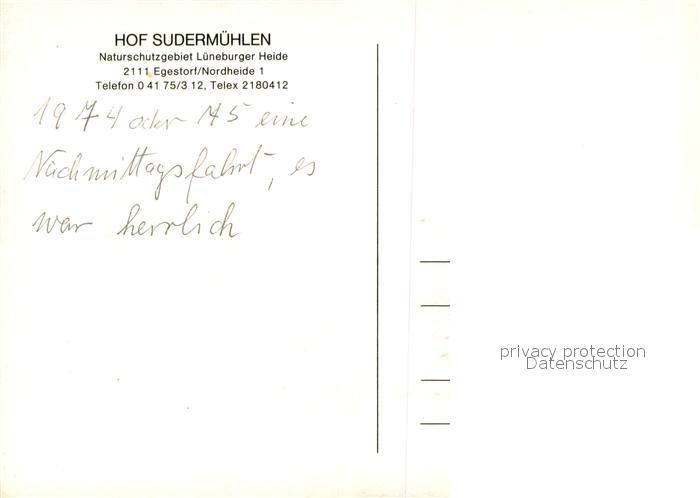 HOF SUDERMÜHLEN
Naturschutzgebiet Lüneburger Heide
2111 Egestorf/Nordheide 1
Telefon 0 41 75/3 12, Telex 2180412
1974 oder 75 eine
Nachmittagsfahrt, es
war herrlich
privacy protection
Datenschutz